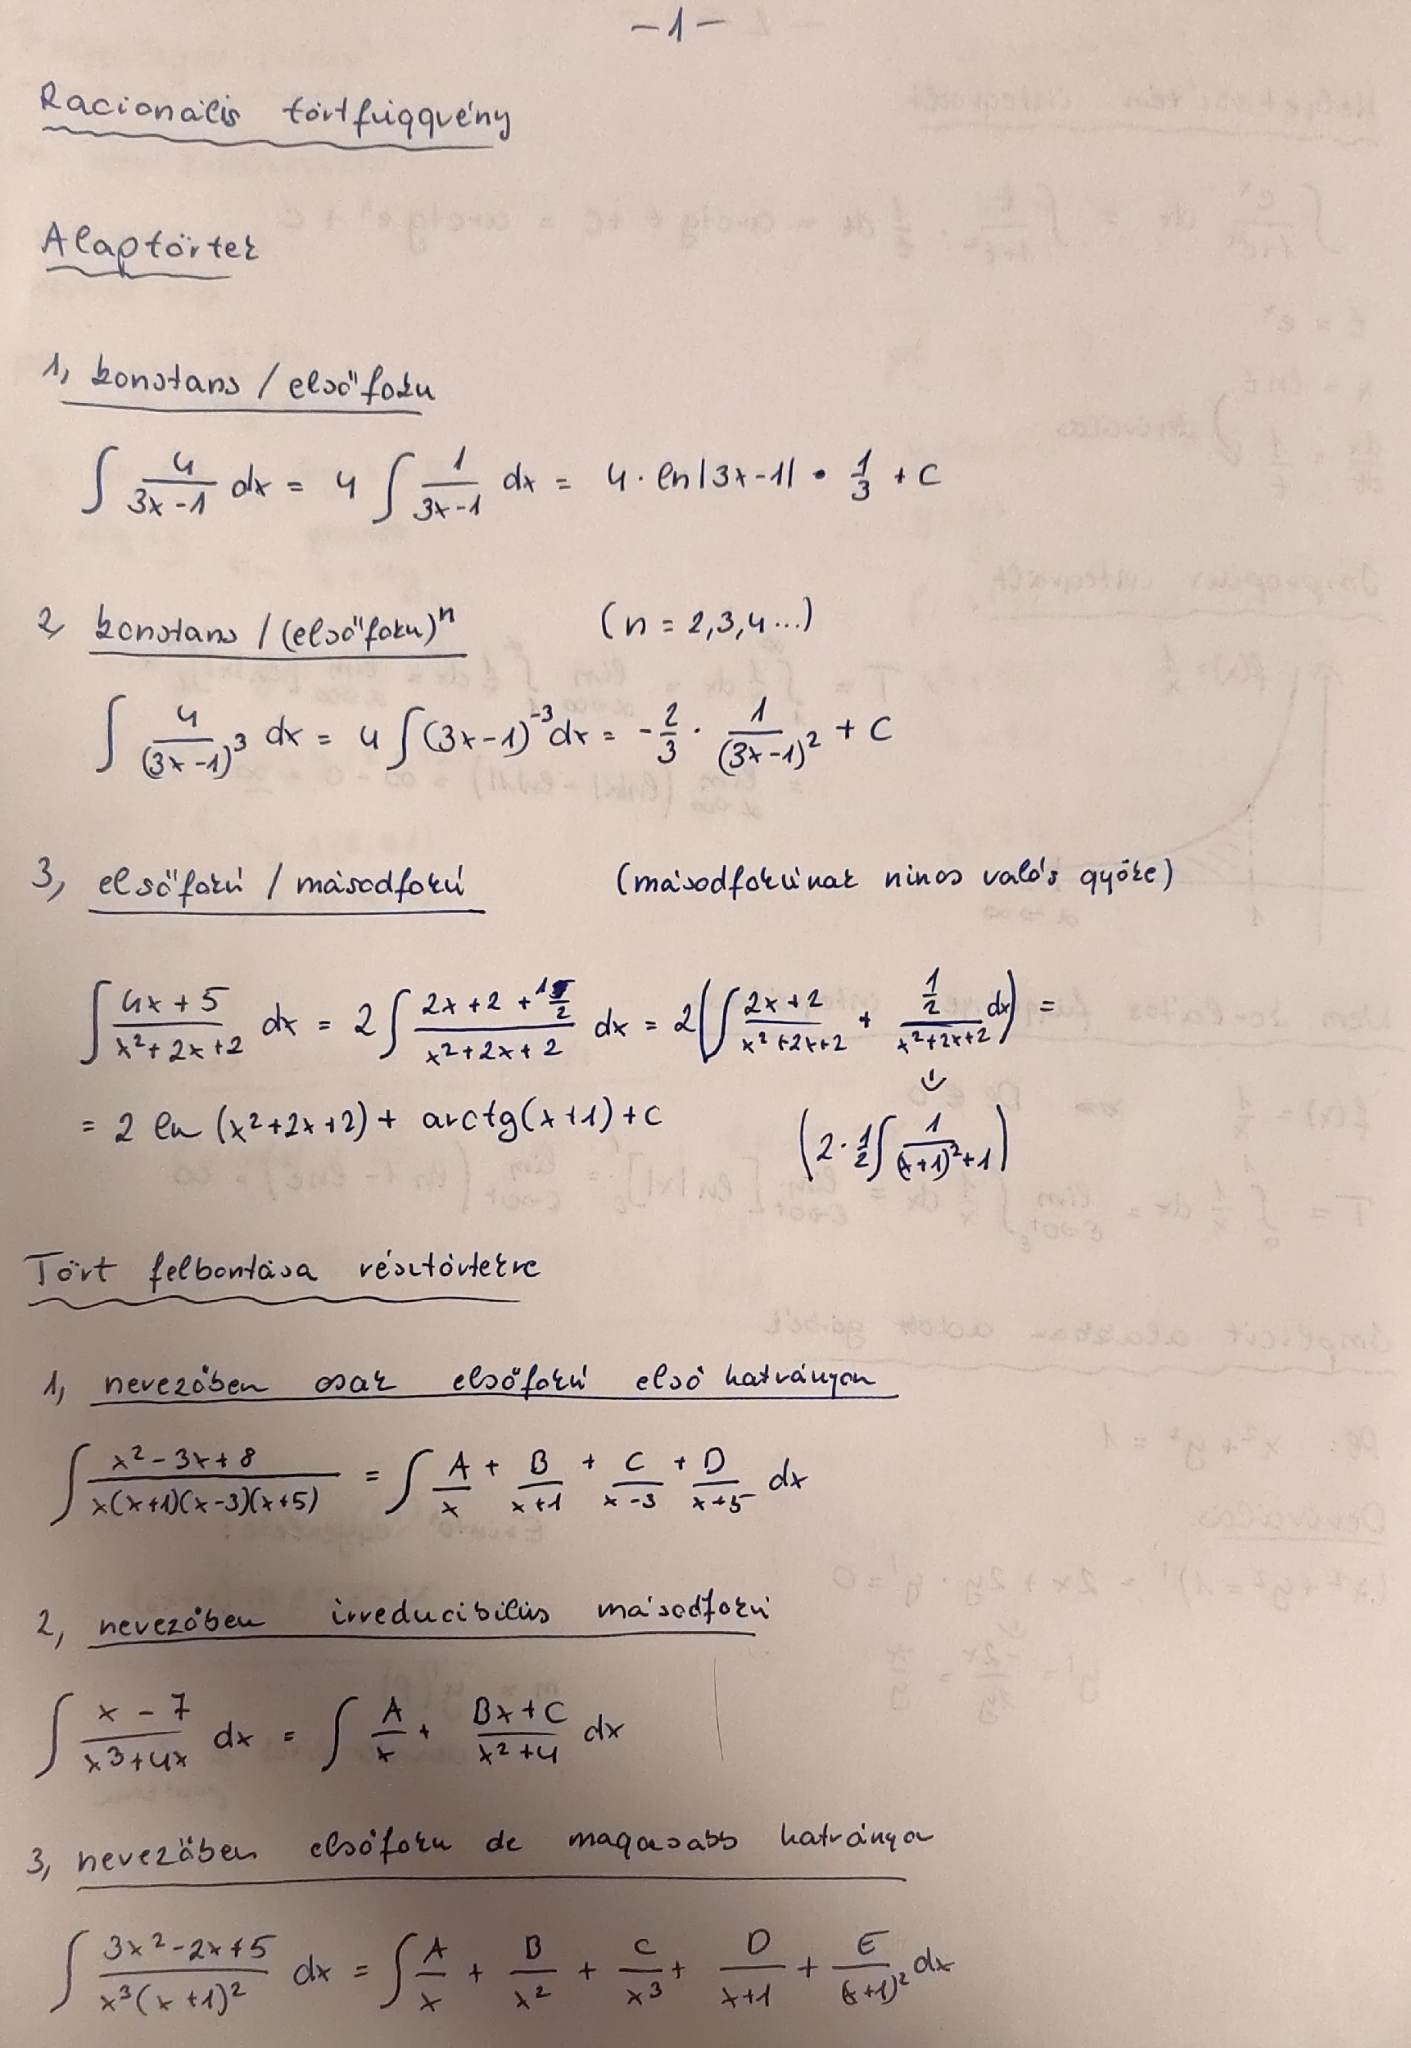 -1-
Racionális törtfüggvény
Alaptörtek
1, konstans / elsőfoku
∫ 4/(3x-1) dx = 4 ∫ 1/(3x-1) dx = 4 · ln|3x-1| · 1/3 + C
2, konstans / (elsőfoku)^n (n = 2,3,4...)
∫ 4/(3x-1)^3 dx = 4 ∫ (3x-1)^-3 dx = -2/3 · 1/(3x-1)^2 + C
3, elsőfokú / másodfokú (másodfokúnak nincs valós gyöke)
∫ (4x+5)/(x^2+2x+2) dx = 2 ∫ (2x+2+1/2)/(x^2+2x+2) dx = 2(∫ (2x+2)/(x^2+2x+2) + (1/2)/(x^2+2x+2) dx) =
= 2 ln (x^2+2x+2) + arctg(x+1) + C (2 · 1/2 ∫ 1/((x+1)^2+1))
Tört felbontása résztörtekre
1, nevezőben csak elsőfokú első hatványon
∫ (x^2-3x+8)/(x(x+1)(x-3)(x+5)) = ∫ A/x + B/(x+1) + C/(x-3) + D/(x+5) dx
2, nevezőben irreducibilis másodfokú
∫ (x-7)/(x^3+4x) dx = ∫ A/x + (Bx+C)/(x^2+4) dx
3, nevezőben elsőfoku de magasabb hatványon
∫ (3x^2-2x+5)/(x^3(x+1)^2) dx = ∫ A/x + B/x^2 + C/x^3 + D/(x+1) + E/(x+1)^2 dx